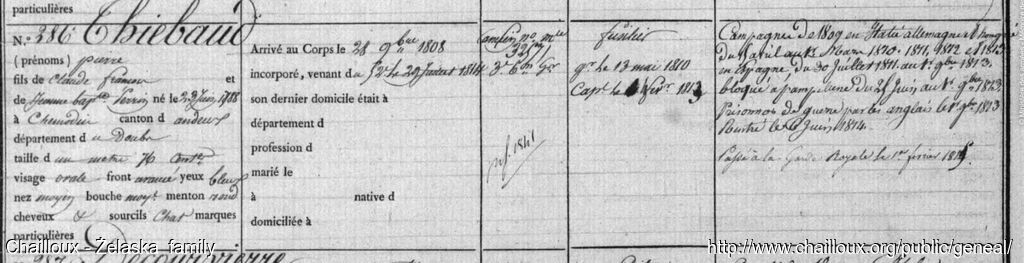 particulières
N.° 386 Thiebaud
(prénoms) pierre
fils de Claude francois et
de Jeanne bapte Perrin né le 23 Juin 1788
à Chemodin canton d'andeux
département du Doubs
taille d'un metre 76 centes
visage ovale front avancé yeux bleus
nez moyen bouche moyt menton rond
cheveux & sourcils Chat marques
particulières
Arrivé au Corps le 28 9bre 1808
incorporé, venant du 52e le 29 Juillet 1814
son dernier domicile était à
département d
profession d
marié le
à native d
domiciliée à
3e bon Gr
pf. 1841
fusilier
gr le 13 mai 1810
Capl le 1 févr. 1813
Campagne de 1809 en Italie allemagne & hongrie
du 1 avril au Mars 1810. 1811, 1812 et 1813
en Espagne, du 30 Juillet 1811 au 1r 9bre 1813.
bloqué à pampelune du 25 Juin au 1r 9bre 1813.
Prisonnier de guerre par les anglais le 1r 9bre 1813
Rentré le 6 Juin 1814.
Passé à la Garde Royale le 1er février 1816.
Chailloux - Żelaska family
http://www.chailloux.org/public/geneal/